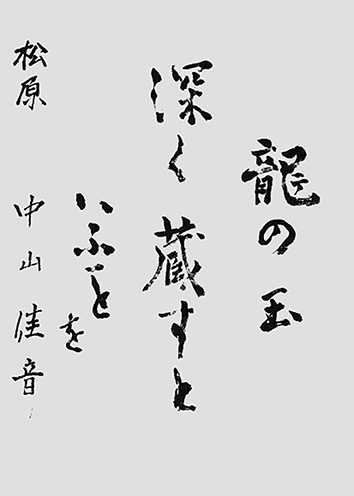 龍の玉
深く蔵すと
いふことを
松原 中山佳音